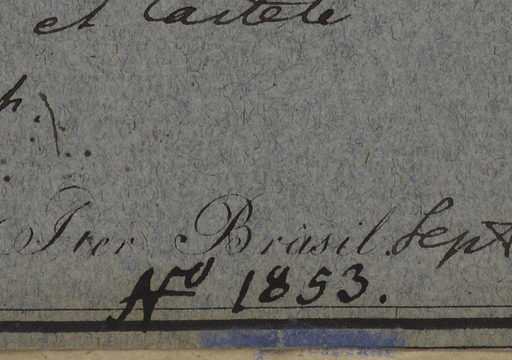 et Castele
Iter Brasil. Sept
No 1853.